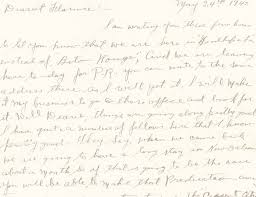 Dearest Florence: May 24th 194
I am writing you these few lines
to let you know that we are here in
instead of Baton Rouge, and we are leaving
here to-day for P.R. you can write to the same
address there and I will get it. I will make
it my business to go to there office and look for
it Well Dear, things are going along pretty good
I have quit a number of fellows here that I know
pretty good. They say, when we come back
we are going to have a long stay in New Orleans
about a month & if that is going to be the case
You will be able to make that